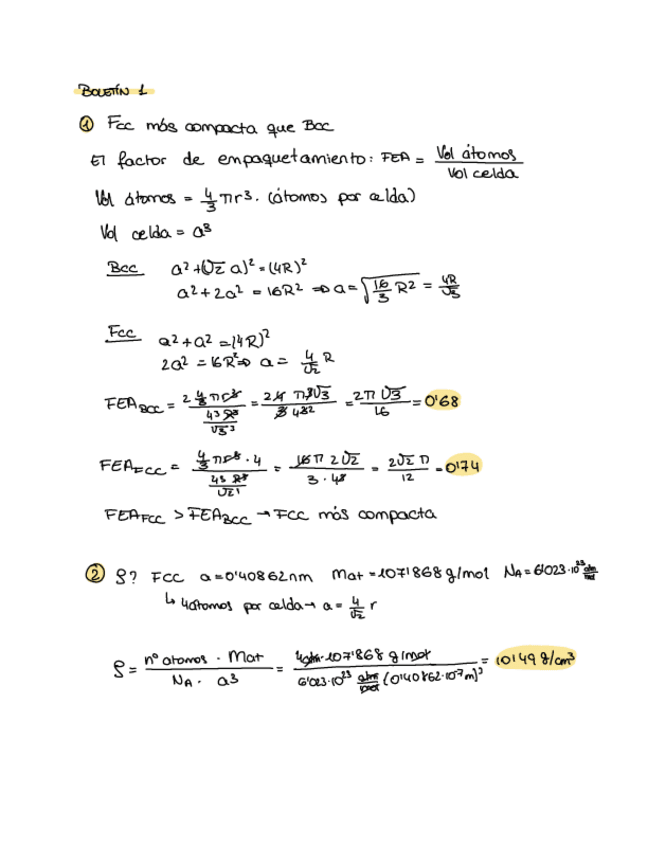 BOLETÍN 1
① FCC más compacta que BCC
El factor de empaquetamiento: FEA = Vol átomos / Vol celda
Vol átomos = 4/3 πr³ · (átomos por celda)
Vol celda = a³
BCC a² + (√2 a)² = (4R)²
a² + 2a² = 16R² ⇒ a = √(16/3 R²) = 4R/√3
FCC a² + a² = (4R)²
2a² = 16R² ⇒ a = 4/√2 R
FEA BCC = = 2π√3 / 16 = 0'68
FEA FCC = = 2√2 π / 12 = 0'74
FEA FCC > FEA BCC → FCC más compacta
② ρ? FCC a = 0'40862 nm Mat = 107'868 g/mol NA = 6'023·10²³ atm/mol
↳ 4 átomos por celda → a = 4/√2 r
ρ = nº atomos · Mat / NA · a³ = 4 atm · 107'868 g/mol / 6'023·10²³ atm/mol (0'40862·10⁻⁷m)³ = 10'49 g/cm³